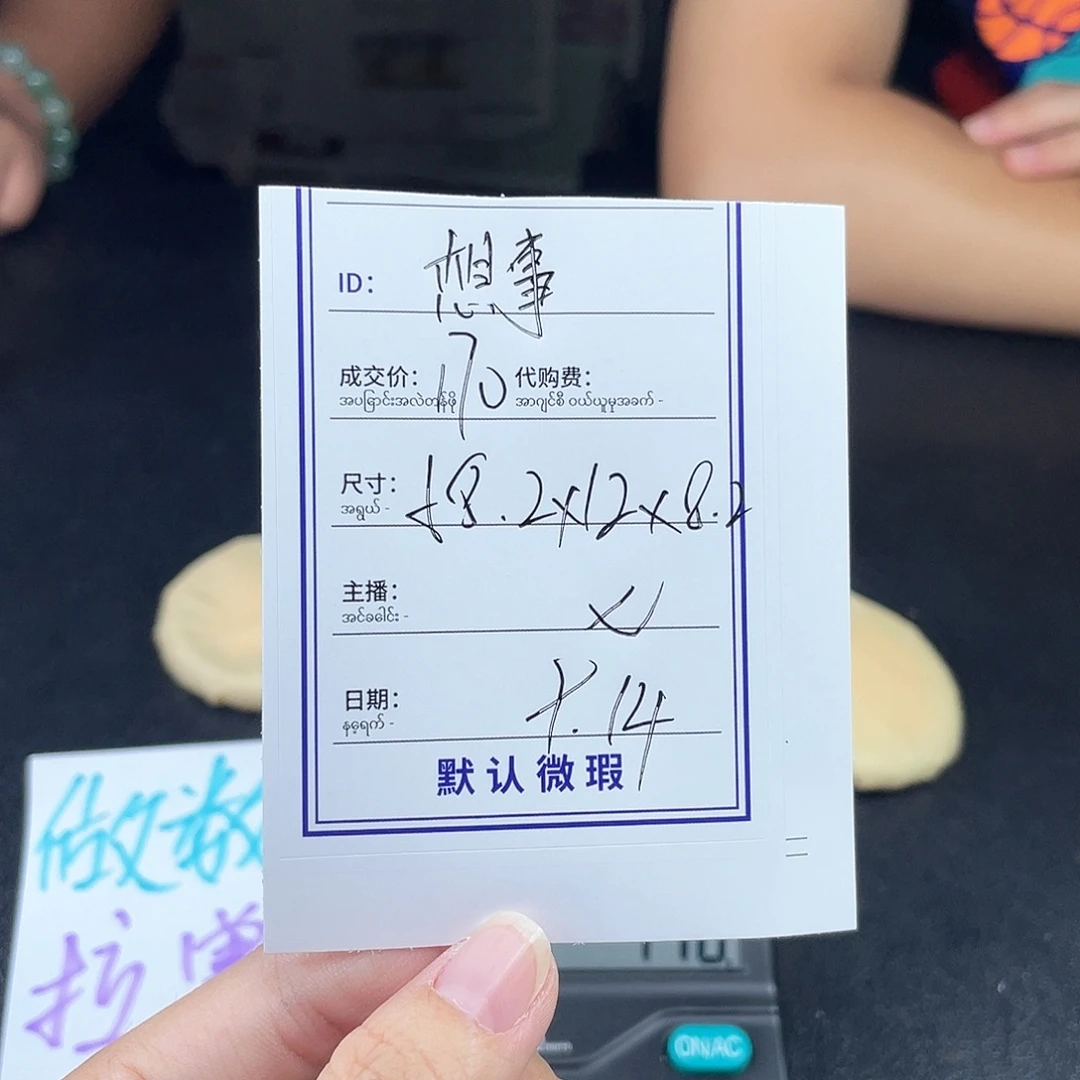 ID: 想事
成交价: 170 代购费:
အပြောင်းအလဲတန်ဖိုး အာဂျင်စီ ဝယ်ယူမှုအခက် -
尺寸: 18.2x12x8.2
အရွယ် -
主播:
အင်ခခေါင်း -
日期: 7.14
နေ့ရက် -
默认微瑕
做
拉
170
ON/AC